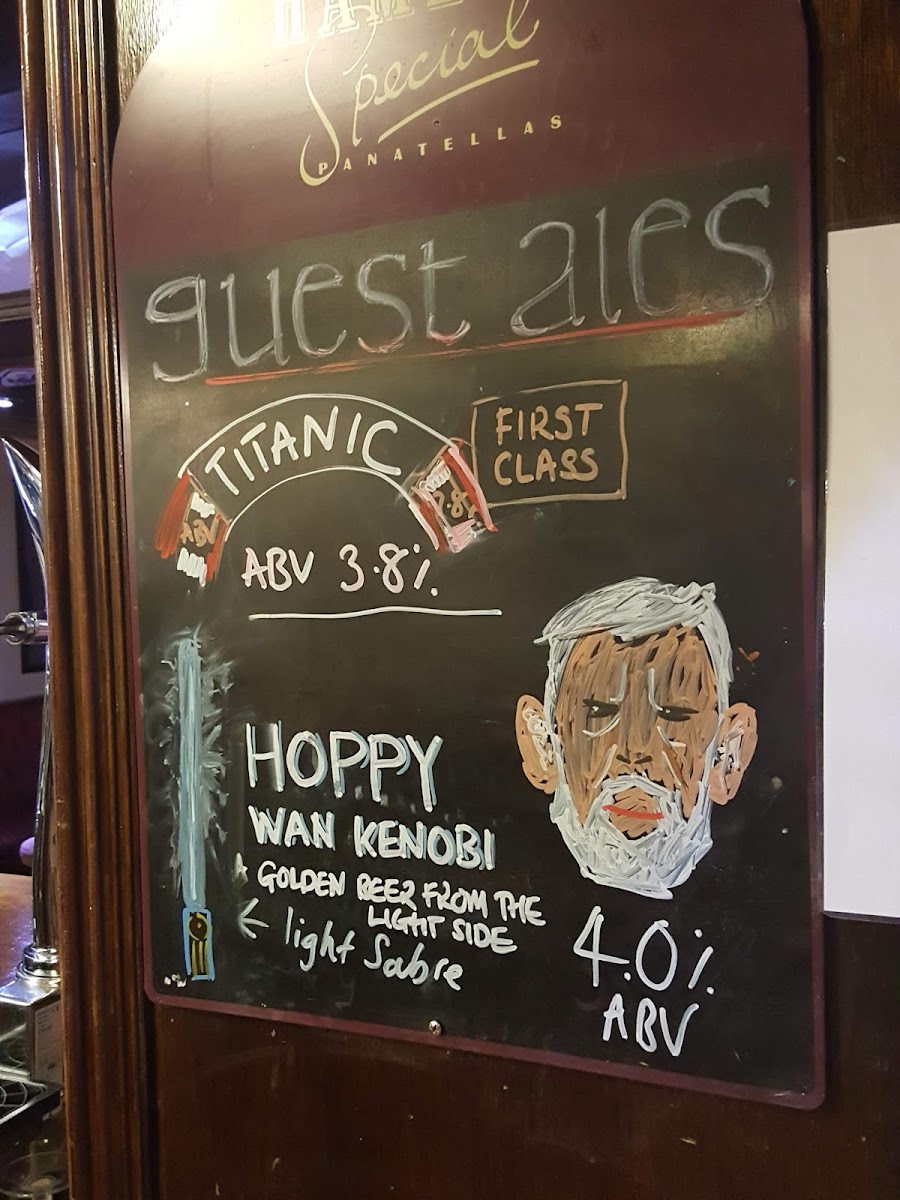 Special
PANATELLAS
guest ales
TITANIC
FIRST
CLASS
ABV
ABV 3.8%
HOPPY
WAN KENOBI
A GOLDEN BEER FROM THE
LIGHT SIDE
← light Sabre
4.0%
ABV